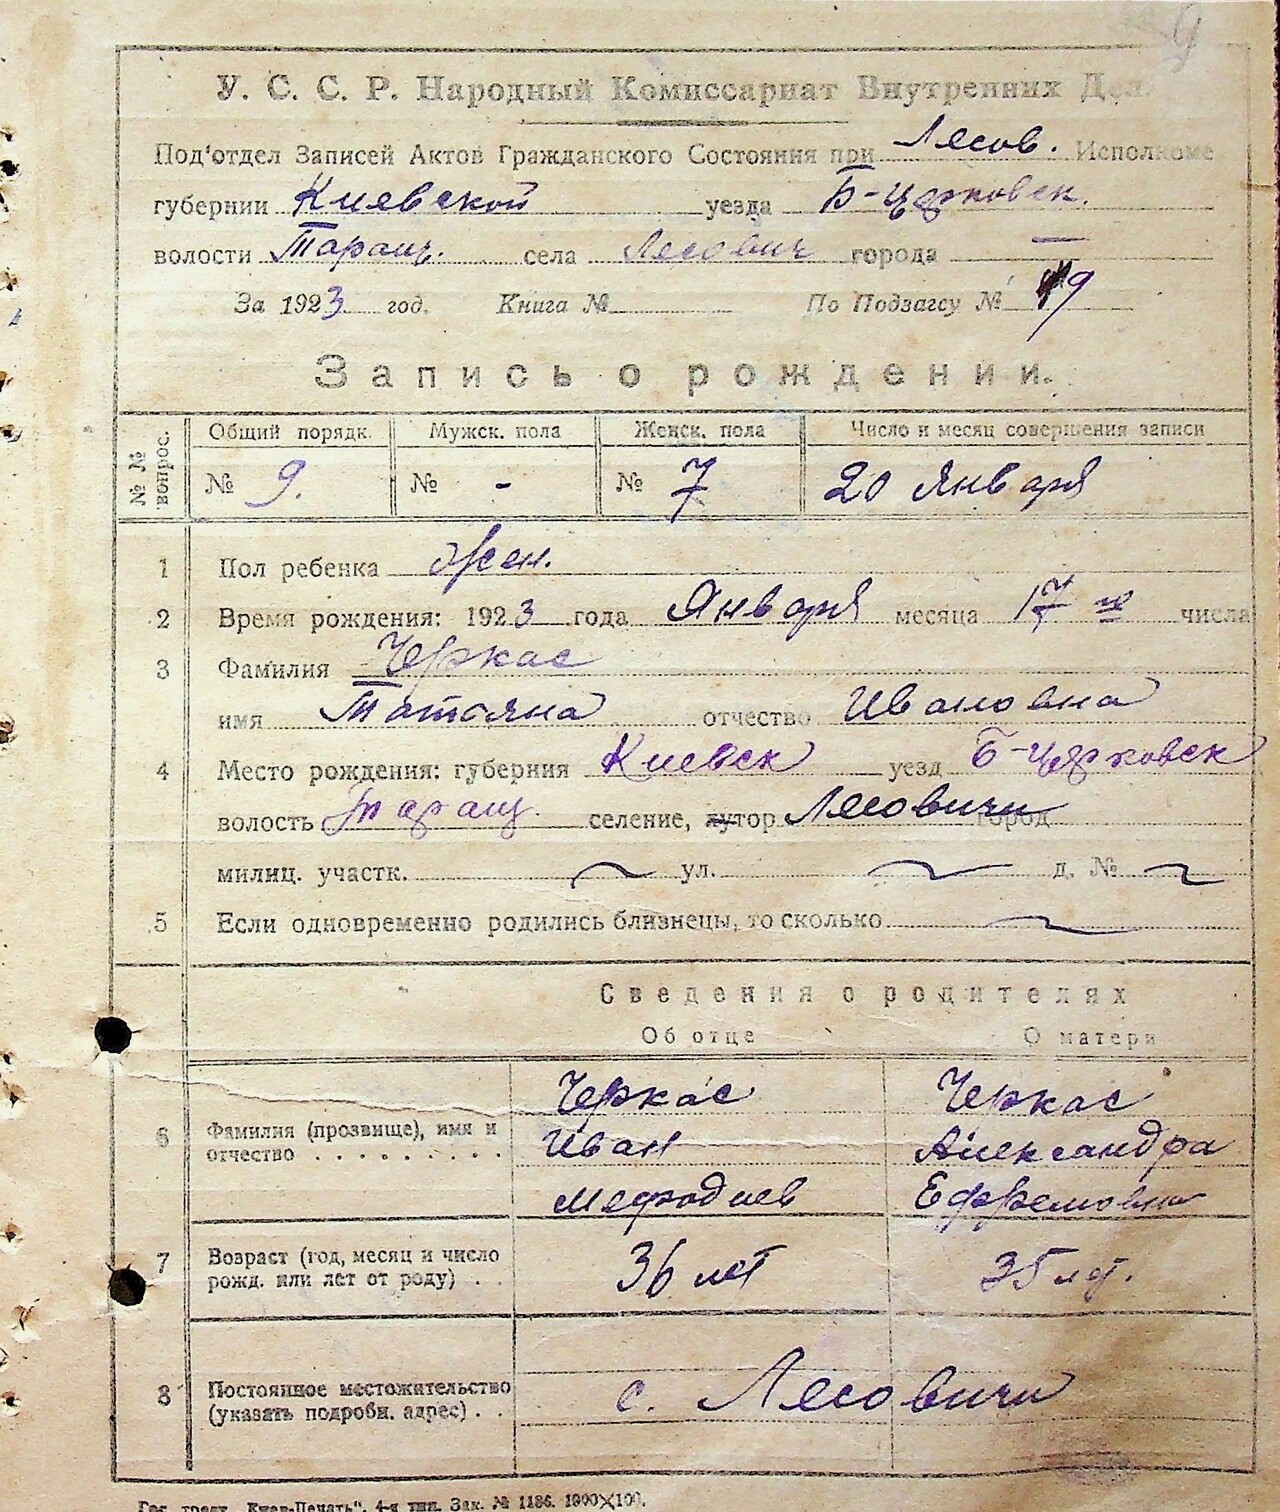 9
У. С. С. Р. Народный Комиссариат Внутренних Дел
Под'отдел Записей Актов Гражданского Состояния при Лесов. Исполкоме
губернии Киевской уезда Б-Церковск.
волости Таращ. села Лесович города —
За 1923 год. Книга № По Подзагсу № 9
Запись о рождении.
№ № вопрос. Общий порядк. Мужск. пола Женск. пола Число и месяц совершения записи
№ 9. № - № 7 20 Января
1 Пол ребенка Жен.
2 Время рождения: 1923 года Января месяца 17 го числа
3 Фамилия Черкас
имя Татьяна отчество Ивановна
4 Место рождения: губерния Киевск уезд Б-Церковск
волость Таращ. селение, хутор Лесовичи город
милиц. участк. ул. д. №
5 Если одновременно родились близнецы, то сколько
Сведения о родителях
Об отце О матери
Черкас Черкас
6 Фамилия (прозвище), имя и Иван Александра
отчество . . . . . . . . . .
Мефодиев Ефремовна
7 Возраст (год, месяц и число 36 лет 35 лет.
рожд. или лет от роду) . .
8 Постоянное местожительство с. Лесовичи
(указать подробн. адрес) . .
Гос. трест „Киев-Печать“, 4-я тип. Зак. № 1186. 1000×100.